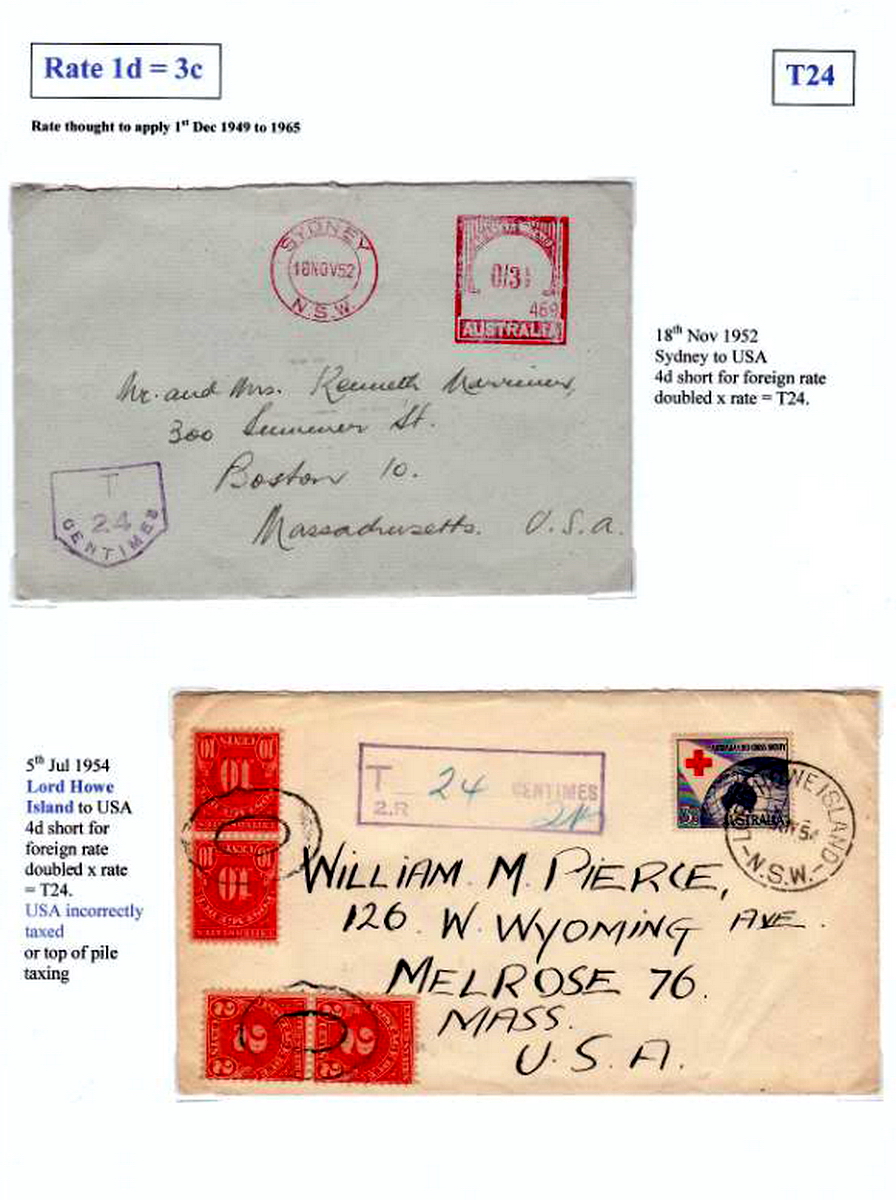 Rate 1d = 3c
T24
Rate thought to apply 1st Dec 1949 to 1965
SYDNEY
18NOV52
N.S.W.
0/3½
469
AUSTRALIA
18th Nov 1952
Sydney to USA
4d short for foreign rate
doubled x rate = T24.
Mr. and Mrs. Kenneth
300 Summer St.
Boston 10.
Massachusetts. U.S.A.
T
24
CENTIMES
5th Jul 1954
Lord Howe
Island to USA
4d short for
foreign rate
doubled x rate
= T24.
USA incorrectly
taxed
or top of pile
taxing
10
10
T 24 CENTIMES
2.R
AUSTRALIAN RED CROSS SOCIETY
AUSTRALIA
HOWE ISLAND
54
N.S.W.
WILLIAM. M. PIERCE,
126. W. WYOMING AVE.
MELROSE 76.
MASS.
U.S.A.
2
2